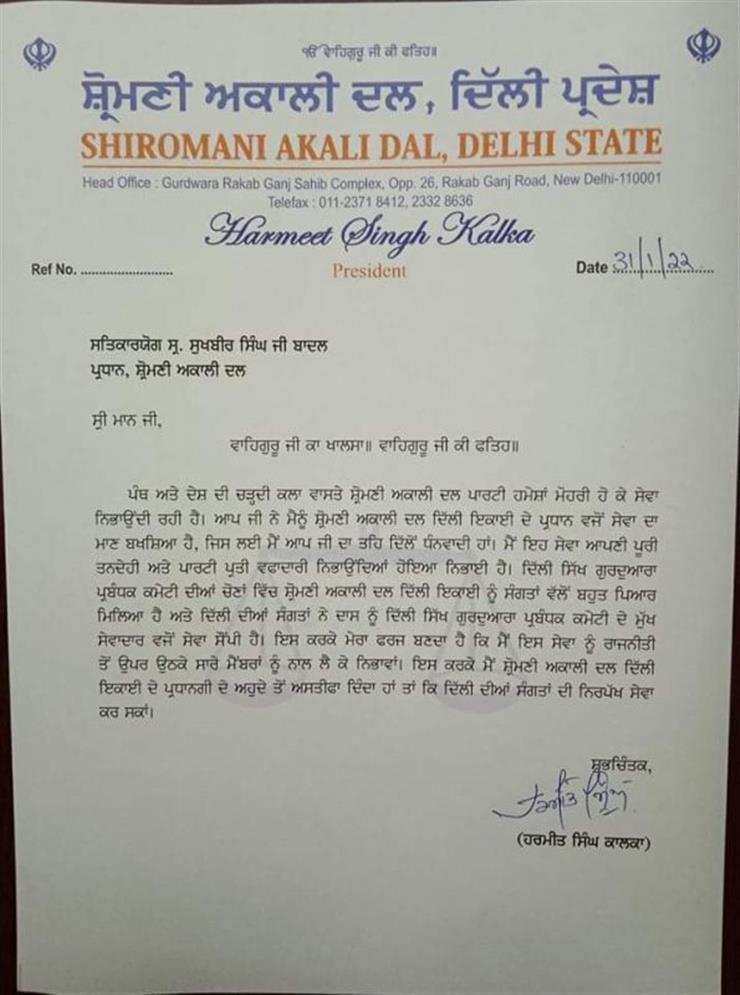 ੴ ਵਾਹਿਗੁਰੂ ਜੀ ਕੀ ਫਤਿਹ॥
ਸ਼੍ਰੋਮਣੀ ਅਕਾਲੀ ਦਲ, ਦਿੱਲੀ ਪ੍ਰਦੇਸ਼
SHIROMANI AKALI DAL, DELHI STATE
Head Office : Gurdwara Rakab Ganj Sahib Complex, Opp. 26, Rakab Ganj Road, New Delhi-110001
Telefax : 011-2371 8412, 2332 8636
Harmeet Singh Kalka
President
Ref No. ..........................
Date :31/1/22
ਸਤਿਕਾਰਯੋਗ ਸ੍ਰ. ਸੁਖਬੀਰ ਸਿੰਘ ਜੀ ਬਾਦਲ
ਪ੍ਰਧਾਨ, ਸ਼੍ਰੋਮਣੀ ਅਕਾਲੀ ਦਲ
ਸ੍ਰੀ ਮਾਨ ਜੀ,
ਵਾਹਿਗੁਰੂ ਜੀ ਕਾ ਖਾਲਸਾ॥ ਵਾਹਿਗੁਰੂ ਜੀ ਕੀ ਫਤਿਹ॥
ਪੰਥ ਅਤੇ ਦੇਸ਼ ਦੀ ਚੜ੍ਹਦੀ ਕਲਾ ਵਾਸਤੇ ਸ਼੍ਰੋਮਣੀ ਅਕਾਲੀ ਦਲ ਪਾਰਟੀ ਹਮੇਸ਼ਾਂ ਮੋਹਰੀ ਹੋ ਕੇ ਸੇਵਾ
ਨਿਭਾਉਂਦੀ ਰਹੀ ਹੈ। ਆਪ ਜੀ ਨੇ ਮੈਨੂੰ ਸ਼੍ਰੋਮਣੀ ਅਕਾਲੀ ਦਲ ਦਿੱਲੀ ਇਕਾਈ ਦੇ ਪ੍ਰਧਾਨ ਵਜੋਂ ਸੇਵਾ ਦਾ
ਮਾਣ ਬਖਸ਼ਿਆ ਹੈ, ਜਿਸ ਲਈ ਮੈਂ ਆਪ ਜੀ ਦਾ ਤਹਿ ਦਿੱਲੋਂ ਧੰਨਵਾਦੀ ਹਾਂ। ਮੈਂ ਇਹ ਸੇਵਾ ਆਪਣੀ ਪੂਰੀ
ਤਨਦੇਹੀ ਅਤੇ ਪਾਰਟੀ ਪ੍ਰਤੀ ਵਫਾਦਾਰੀ ਨਿਭਾਉਂਦਿਆਂ ਹੋਇਆ ਨਿਭਾਈ ਹੈ। ਦਿੱਲੀ ਸਿੱਖ ਗੁਰਦੁਆਰਾ
ਪ੍ਰਬੰਧਕ ਕਮੇਟੀ ਦੀਆਂ ਚੋਣਾਂ ਵਿੱਚ ਸ਼੍ਰੋਮਣੀ ਅਕਾਲੀ ਦਲ ਦਿੱਲੀ ਇਕਾਈ ਨੂੰ ਸੰਗਤਾਂ ਵੱਲੋਂ ਬਹੁਤ ਪਿਆਰ
ਮਿਲਿਆ ਹੈ ਅਤੇ ਦਿੱਲੀ ਦੀਆਂ ਸੰਗਤਾਂ ਨੇ ਦਾਸ ਨੂੰ ਦਿੱਲੀ ਸਿੱਖ ਗੁਰਦੁਆਰਾ ਪ੍ਰਬੰਧਕ ਕਮੇਟੀ ਦੇ ਮੁੱਖ
ਸੇਵਾਦਾਰ ਵਜੋਂ ਸੇਵਾ ਸੌਂਪੀ ਹੈ। ਇਸ ਕਰਕੇ ਮੇਰਾ ਫਰਜ ਬਣਦਾ ਹੈ ਕਿ ਮੈਂ ਇਸ ਸੇਵਾ ਨੂੰ ਰਾਜਨੀਤੀ
ਤੋਂ ਉਪਰ ਉਠਕੇ ਸਾਰੇ ਮੈਂਬਰਾਂ ਨੂੰ ਨਾਲ ਲੈ ਕੇ ਨਿਭਾਵਾਂ। ਇਸ ਕਰਕੇ ਮੈਂ ਸ਼੍ਰੋਮਣੀ ਅਕਾਲੀ ਦਲ ਦਿੱਲੀ
ਇਕਾਈ ਦੇ ਪ੍ਰਧਾਨਗੀ ਦੇ ਅਹੁਦੇ ਤੋਂ ਅਸਤੀਫਾ ਦਿੰਦਾ ਹਾਂ ਤਾਂ ਕਿ ਦਿੱਲੀ ਦੀਆਂ ਸੰਗਤਾਂ ਦੀ ਨਿਰਪੱਖ ਸੇਵਾ
ਕਰ ਸਕਾਂ।
ਸ਼ੁਭਚਿੰਤਕ,
ਹਰਮੀਤ ਸਿੰਘ
(ਹਰਮੀਤ ਸਿੰਘ ਕਾਲਕਾ)